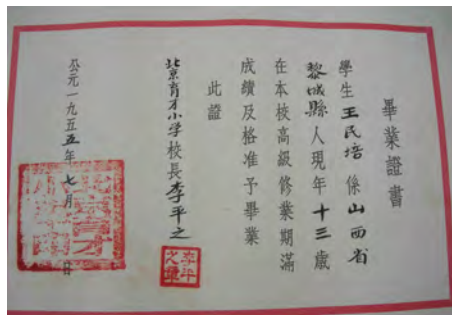 畢業證書
學生王民培係山西省
黎城縣人現年十三歲
在本校高級修業期滿
成績及格准予畢業
此證
北京育才小学校長李平之
李平之章
公元一九五五年七月 日